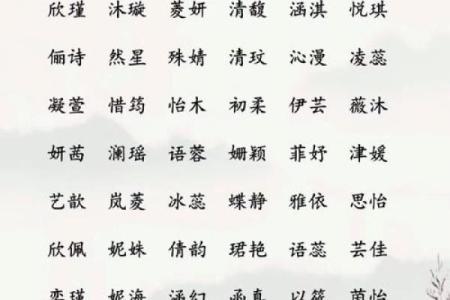 欣瑾 沐璇 菱妍 清馥 涵淇 悦琪
俪诗 然星 殊婧 清玟 沁漫 凌蕊
凝萱 惜筠 怡木 初柔 伊芸 薇沐
妍茜 澜瑶 语蓉 姗颖 菲妤 津媛
艺歆 岚菱 冰蕊 蝶静 雅依 思怡
欣佩 妮姝 倩韵 珺艳 语蕊 芸佳
奕瑾 妮海 涵幻 函真 以筠 茵怡